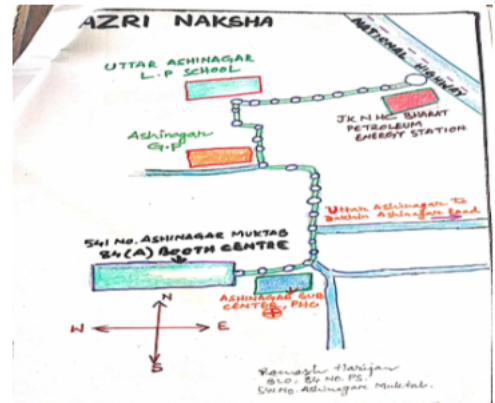 AZRI NAKSHA
NATIONAL HIGHWAY
UTTAR ASHINAGAR
L.P SCHOOL
JK N HC BHARAT
PETROLEUM
ENERGY STATION
Ashinagar
G.P
Uttar Ashinagar to
Dakhin Ashinagar Road
541 NO. ASHINAGAR MUKTAB
84(A) BOOTH CENTRE
ASHINAGAR SUB
CENTER, PHC
N
W
E
S
Ramesh Harijan
BLO, 84 NO. PS.
541 No. Ashinagar Muktab.